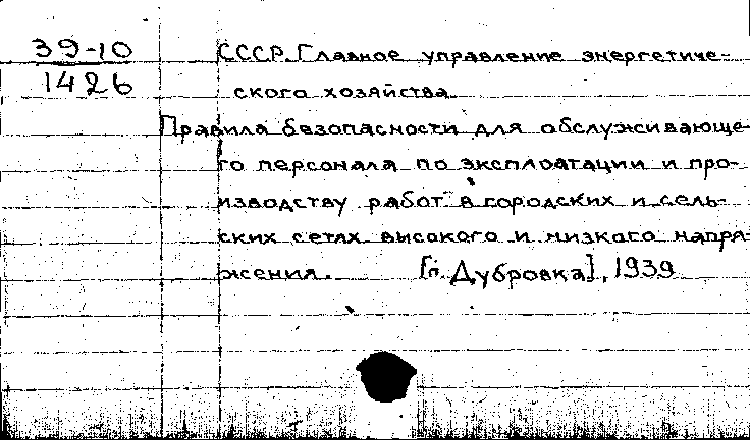 39-10
1426
СССР. Главное управление энергетиче-
ского хозяйства.
Правила безопасности для обслуживающе-
го персонала по эксплоатации и про-
изводству работ в городских и сель-
ских сетях высокого и низкого напря-
жения. [п. Дубровка], 1939